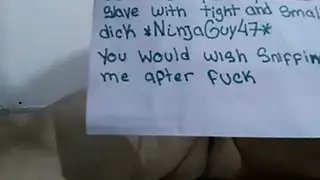 slave with tight and small
dick *NinjaGuy47*
You would wish sniffin
me after fuck